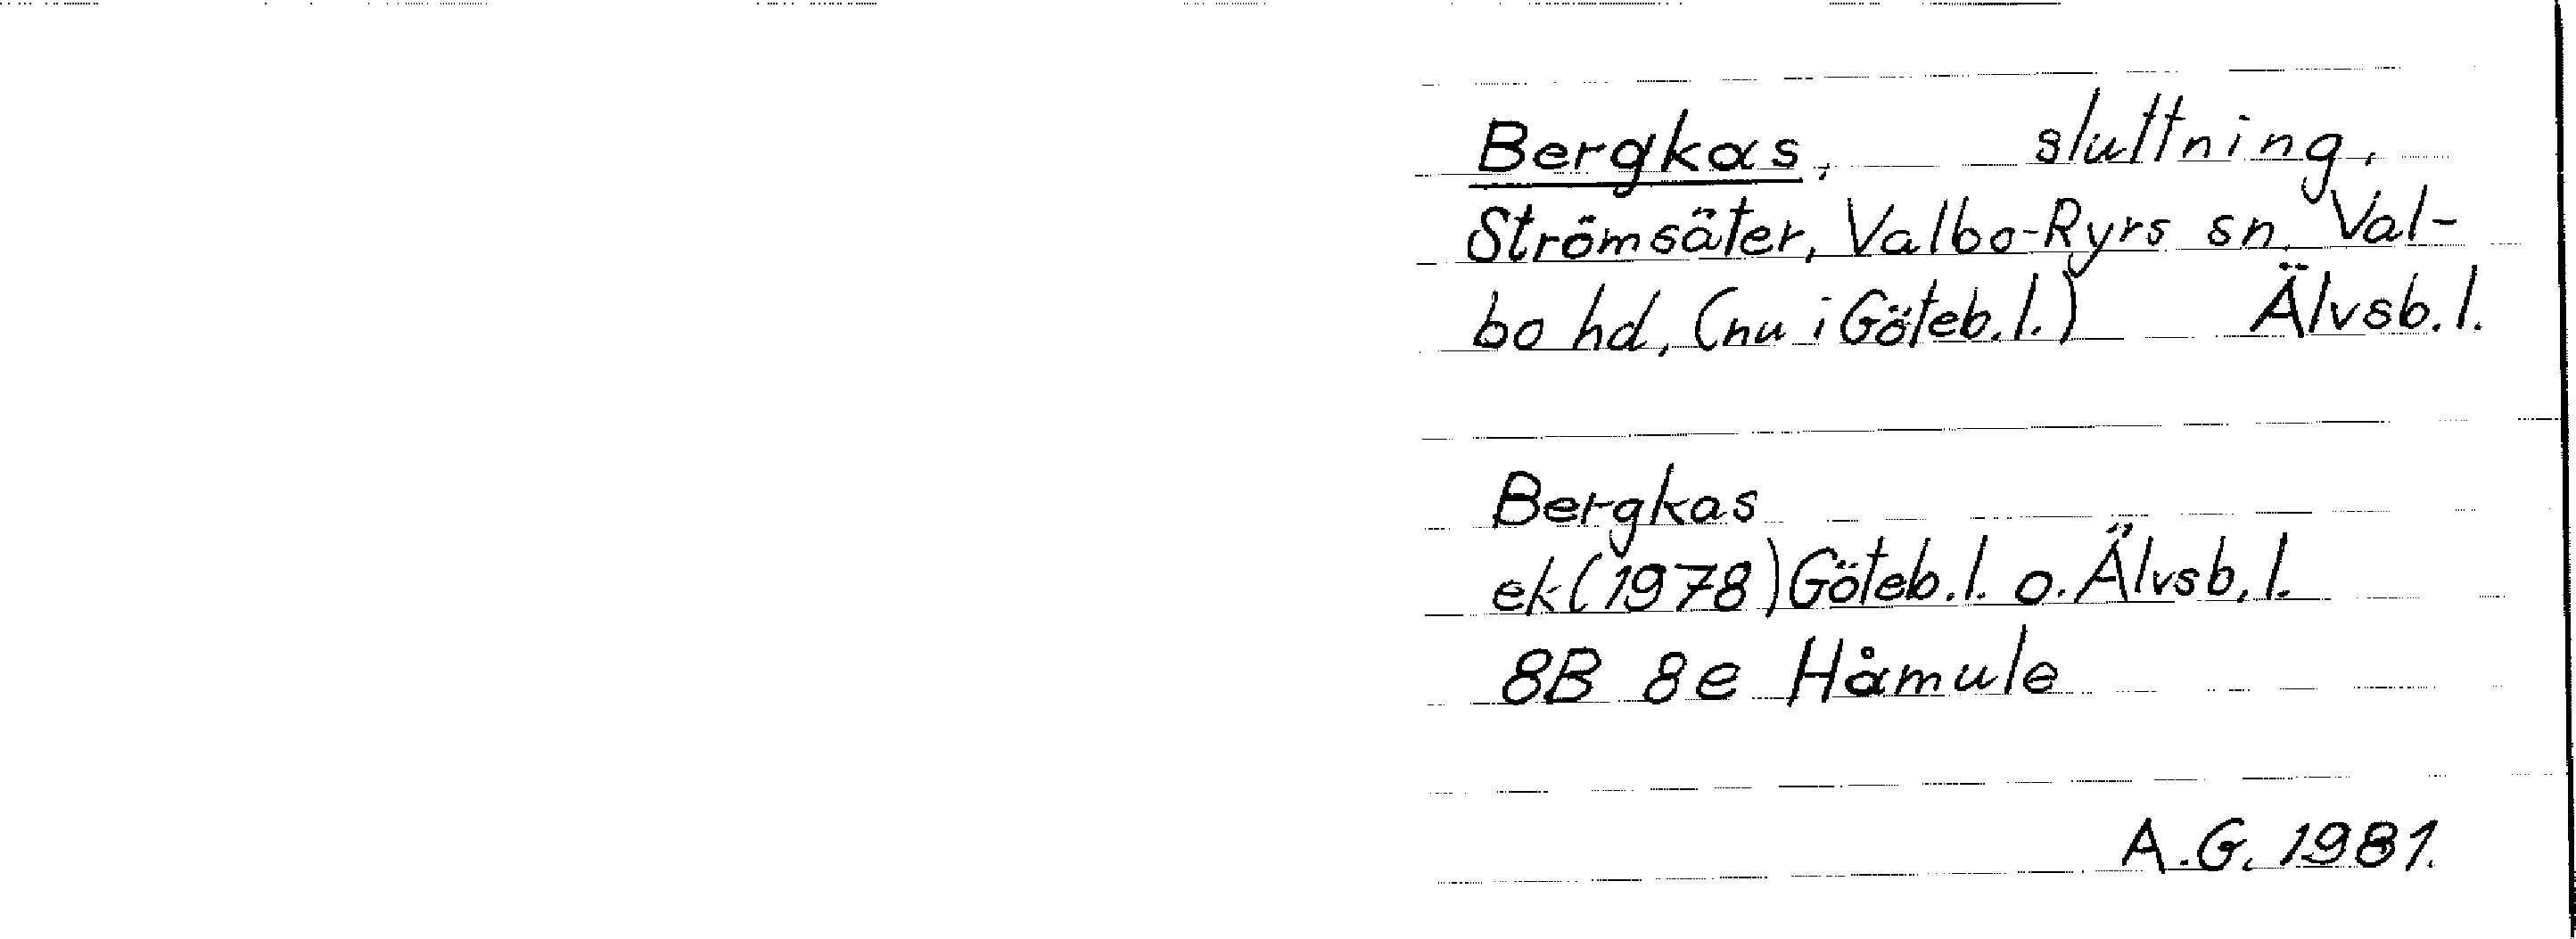 Bergkas, sluttning,
Strömsäter, Valbo-Ryrs sn, Val-
bo hd, (nu i Göteb.l.) Älvsb.l.
Bergkas
ek (1978) Göteb.l. o. Älvsb.l.
8B 8e Håmule
A.G. 1981.